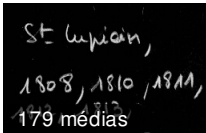 St Lupicin,
1808, 1810, 1811,
1812, 1813,
179 médias